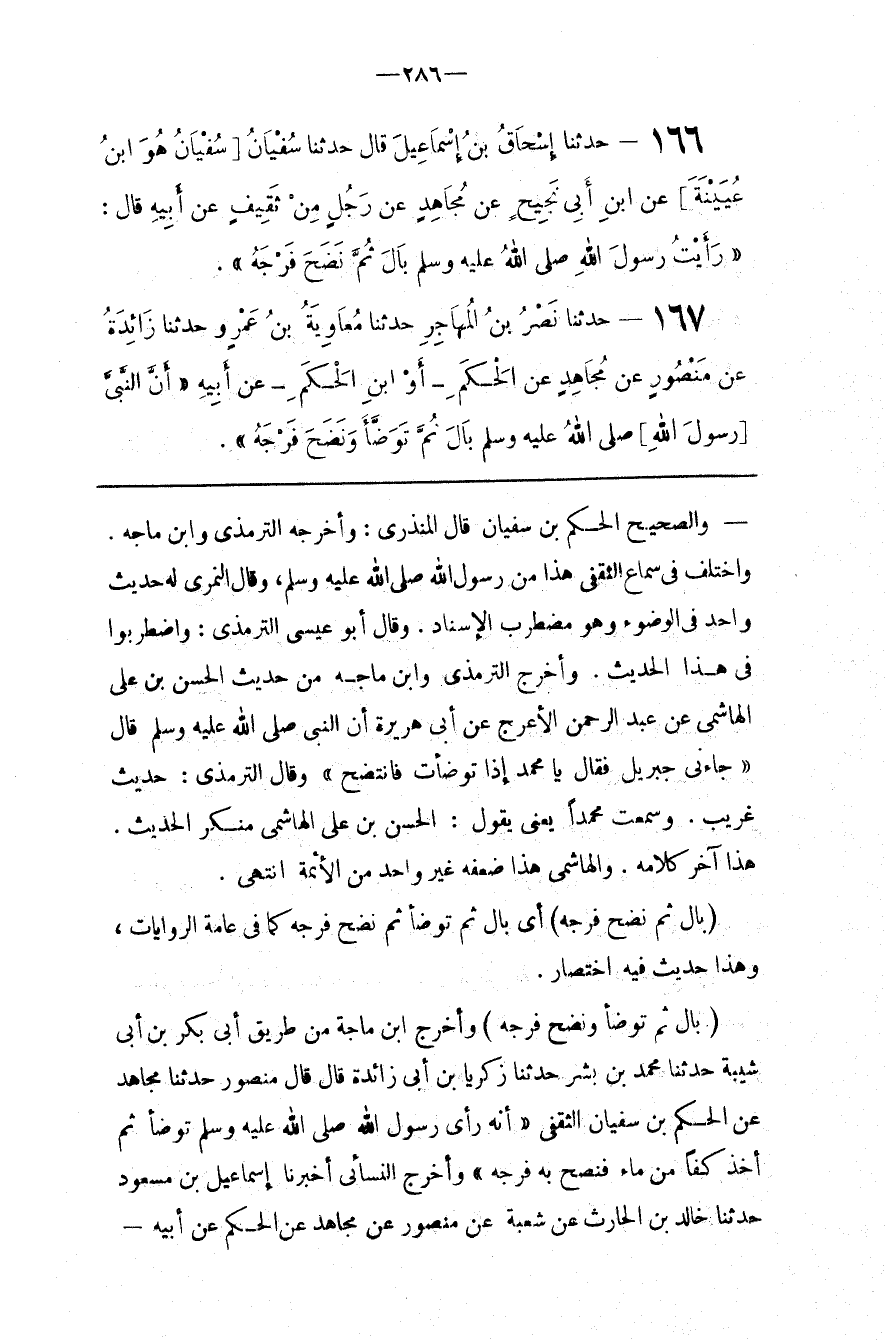 —٢٨٦—
١٦٦ — حدثنا إِسْحَاقُ بنُ إِسْمَاعِيلَ قال حدثنا سُفْيَانُ [ سُفْيَانُ هُوَ ابنُ
عُيَيْنَةَ ] عن ابنِ أَبِى نَجِيحٍ عن مُجَاهِدٍ عن رَجُلٍ مِنْ ثَقِيفٍ عن أَبِيهِ قال :
« رَأَيْتُ رسولَ اللهِ صلى اللهُ عليه وسلم بَالَ ثُمَّ نَضَحَ فَرْجَهُ » .
١٦٧ — حدثنا نَصْرُ بنُ الْمهَاجِرِ حدثنا مُعَاوِيَةُ بنُ عَمْرٍو حدثنا زَائِدَةُ
عن مَنْصُورٍ عن مُجَاهِدٍ عن الْحَكَمِ ـ أَوْ ابنِ الْحَكَمِ ـ عن أَبِيهِ « أَنَّ النَّبِىَّ
[رسولَ اللهِ] صلى اللهُ عليه وسلم بَالَ ثُمَّ تَوَضَّأَ وَنَضَحَ فَرْجَهُ » .
— والصحيح الحكم بن سفيان قال المنذرى : وأخرجه الترمذى وابن ماجه .
واختلف فى سماع الثقفى هذا من رسول الله صلى الله عليه وسلم، وقال النمرى له حديث
واحد فى الوضوء وهو مضطرب الإسناد . وقال أبو عيسى الترمذى : واضطربوا
فى هذا الحديث . وأخرج الترمذى وابن ماجه من حديث الحسن بن على
الهاشمى عن عبد الرحمن الأعرج عن أبى هريرة أن النبى صلى الله عليه وسلم قال
« جاءنى جبريل فقال يا محمد إذا توضأت فانتضح » وقال الترمذى : حديث
غريب . وسمعت محمداً يعنى يقول : الحسن بن على الهاشمى منكر الحديث .
هذا آخر كلامه . والهاشمى هذا ضعفه غير واحد من الأئمة انتهى .
(بال ثم نضح فرجه) أى بال ثم توضأ ثم نضح فرجه كما فى عامة الروايات ،
وهذا حديث فيه اختصار .
( بال ثم توضأ ونضح فرجه ) وأخرج ابن ماجة من طريق أبى بكر بن أبى
شيبة حدثنا محمد بن بشر حدثنا زكريا بن أبى زائدة قال قال منصور حدثنا مجاهد
عن الحكم بن سفيان الثقفى « أنه رأى رسول الله صلى الله عليه وسلم توضأ ثم
أخذ كفاً من ماء فنصح به فرجه » وأخرج النسائى أخبرنا إسماعيل بن مسعود
حدثنا خالد بن الحارث عن شعبة عن منصور عن مجاهد عن الحكم عن أبيه —